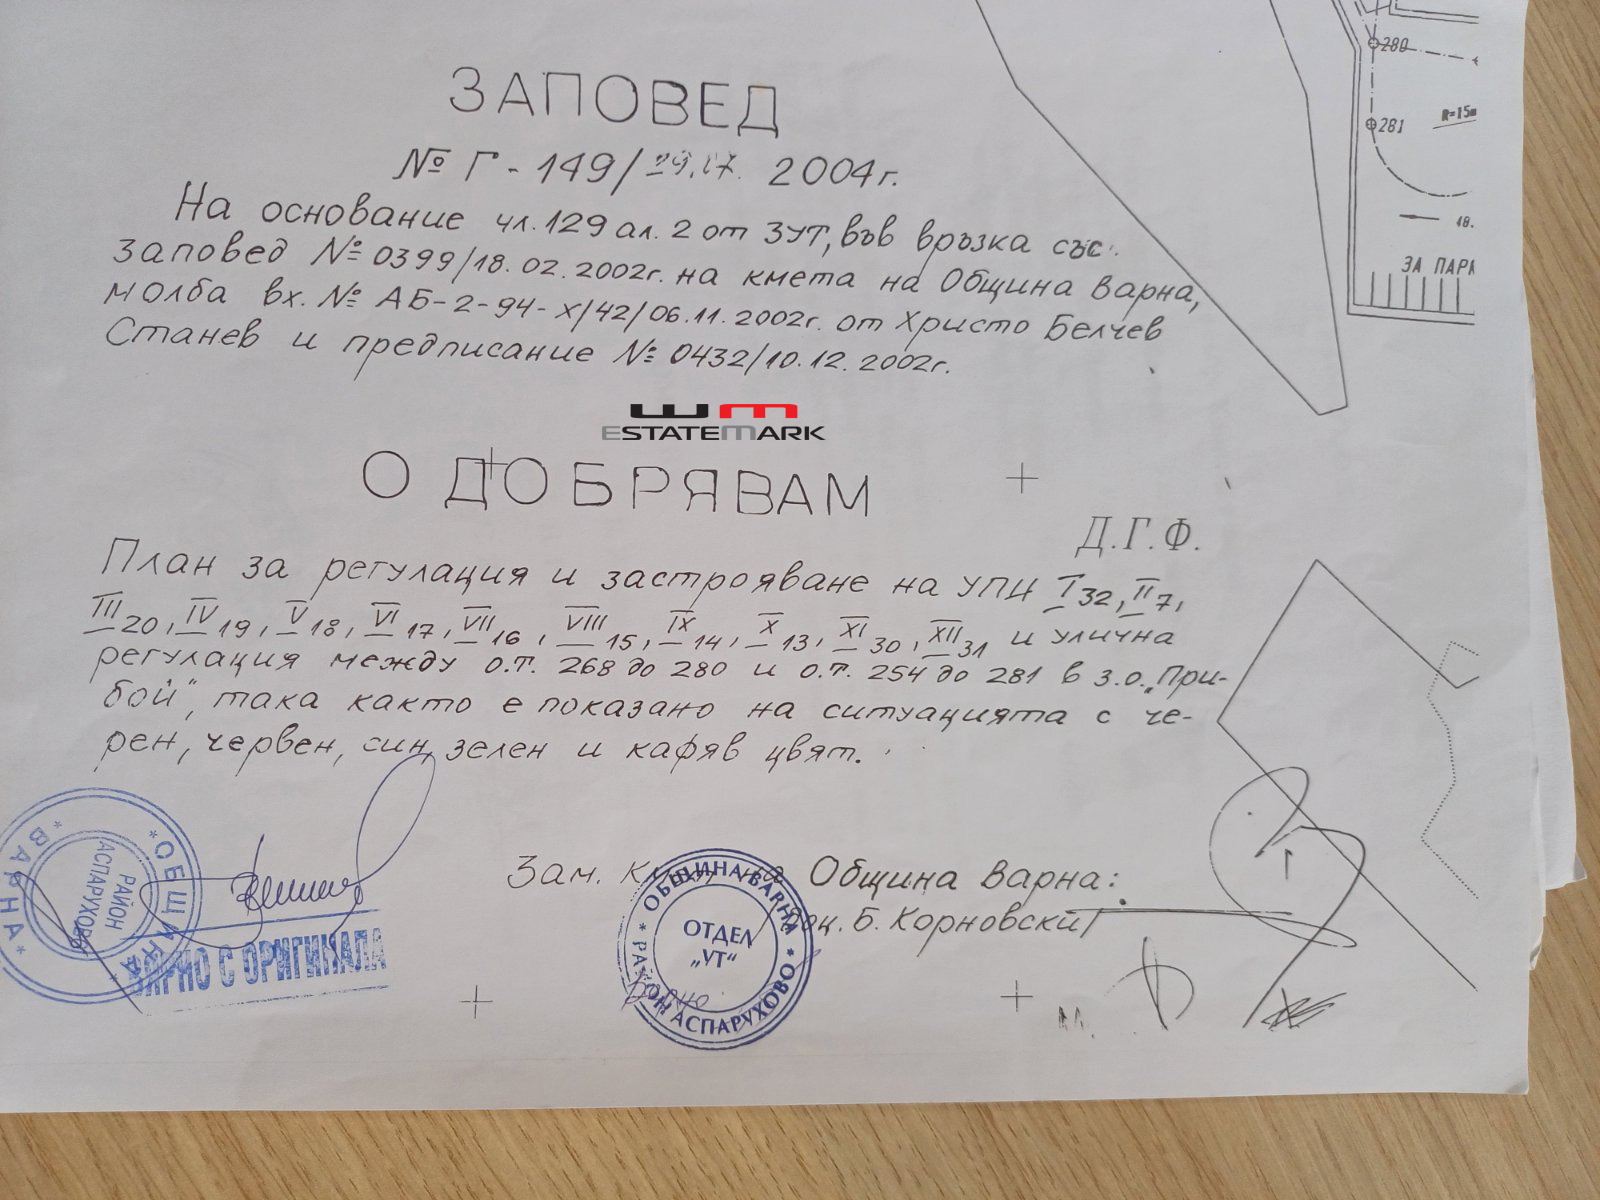 ЗАПОВЕД
№ Г - 149/29.07. 2004г.
На основание чл.129 ал.2 от ЗУТ, във връзка със
заповед № 0399/18.02.2002г. на кмета на Община Варна,
молба вх. № АБ-2-94-Х/42/06.11.2002г. от Христо Белчев
Станев и предписание № 0432/10.12.2002г.
WM
ESTATEMARK
ОДОБРЯВАМ
Д.Г.Ф.
План за регулация и застрояване на УПИ I 32, II 7,
III 20, IV 19, V 18, VI 17, VII 16, VIII 15, IX 14, X 13, XI 30, XII 31 и улична
регулация между о.т. 268 до 280 и о.т. 254 до 281 в з.о. „При-
бой", така както е показано на ситуацията с че-
рен, червен, син, зелен и кафяв цвят.
Зам. на Община Варна:
/доц. Б. Корновски/
* ОБЩИНА * ВАРНА *
РАЙОН
АСПАРУХОВО
ВЯРНО С ОРИГИНАЛА
ОБЩИНА ВАРНА * РАЙОН АСПАРУХОВО *
ОТДЕЛ
„УТ"
280
281
R=15м
18.
ЗА ПАРК